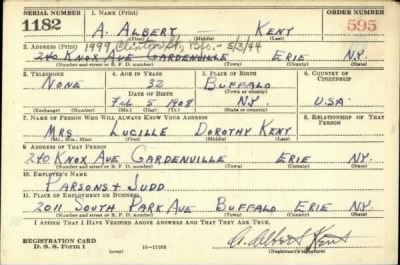 SERIAL NUMBER 1. NAME (Print) ORDER NUMBER
1182 A. ALBERT KENT 595
(First) (Middle) (Last)
2. ADDRESS (Print) 1999 Clinton St, Bfo. - 5/3/44
240 KNOX AVE GARDENVILLE ERIE N.Y.
(Number and street or R. F. D. number) (Town) (County) (State)
3. TELEPHONE 4. AGE IN YEARS 5. PLACE OF BIRTH 6. COUNTRY OF CITIZENSHIP
NONE 32 BUFFALO
DATE OF BIRTH (Town or county)
FEB 5 1908 N.Y. U.S.A.
(Exchange) (Number) (Mo.) (Day) (Yr.) (State or country)
7. NAME OF PERSON WHO WILL ALWAYS KNOW YOUR ADDRESS 8. RELATIONSHIP OF THAT PERSON
MRS LUCILLE DOROTHY KENT
(Mr., Mrs., Miss) (First) (Middle) (Last)
9. ADDRESS OF THAT PERSON
240 KNOX AVE. GARDENVILLE ERIE N.Y.
(Number and street or R. F. D. number) (Town) (County) (State)
10. EMPLOYER'S NAME
PARSONS + JUDD
11. PLACE OF EMPLOYMENT OR BUSINESS
2011 SOUTH PARK AVE BUFFALO ERIE N.Y.
(Number and street or R. F. D. number) (Town) (County) (State)
I AFFIRM THAT I HAVE VERIFIED ABOVE ANSWERS AND THAT THEY ARE TRUE.
REGISTRATION CARD
D. S. S. Form 1 (over) 16-17105 A. Albert Kent
(Registrant's signature)